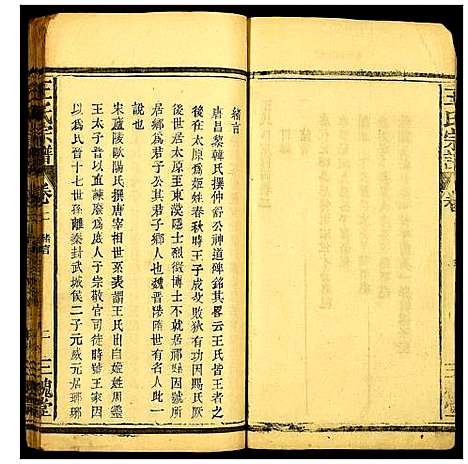 緒言
唐昌黎韓氏撰仲舒公神道碑銘其畧云王氏皆王者之
後在太原為姬姓春秋時王子成攵敗狄有功因賜氏厥
後世居太原至東漢隱士烈徵博士不就居祁縣因號所
居鄉為君子公其君子鄉人也魏晋隋世有名人此一
說也
宋廬陵歐陽氏撰唐宰相世系表謂王氏出自姬姓周靈
王太子晉以直諫廢為庶人子宗敬官司徒時號王家因
以為氏晉十七世孫離秦封武城侯二子元威元居瑯琊
王氏宗譜
卷
緒言
三槐堂
王氏宗